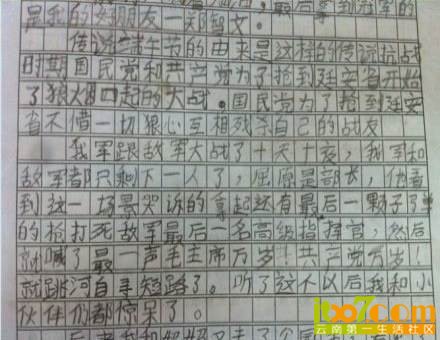 最后拿到冠军的
是我的好朋友一郑智文
传说端午节的由来是这样的传说抗战
时期国民党和共产党为了抢到延安省开始
了狼烟四起的大战。国民党为了抢到延安
省不惜一切狠心互相残杀自己的战友
我军跟敌军大战了十天十夜,我军和
敌军都只剩下一人了,屈原是部长,他看
到这一场景哭诉的拿起还有最后一颗子弹
的枪打死敌军最后一名高级指挥官,然后
就喊了最一声毛主席万岁!共产党万岁!
就跳河自寻短路了。听了这不以后我和小
伙伴们都惊呆了。
后来我和妈妈又去了
lbo7com
云南第一生活社区